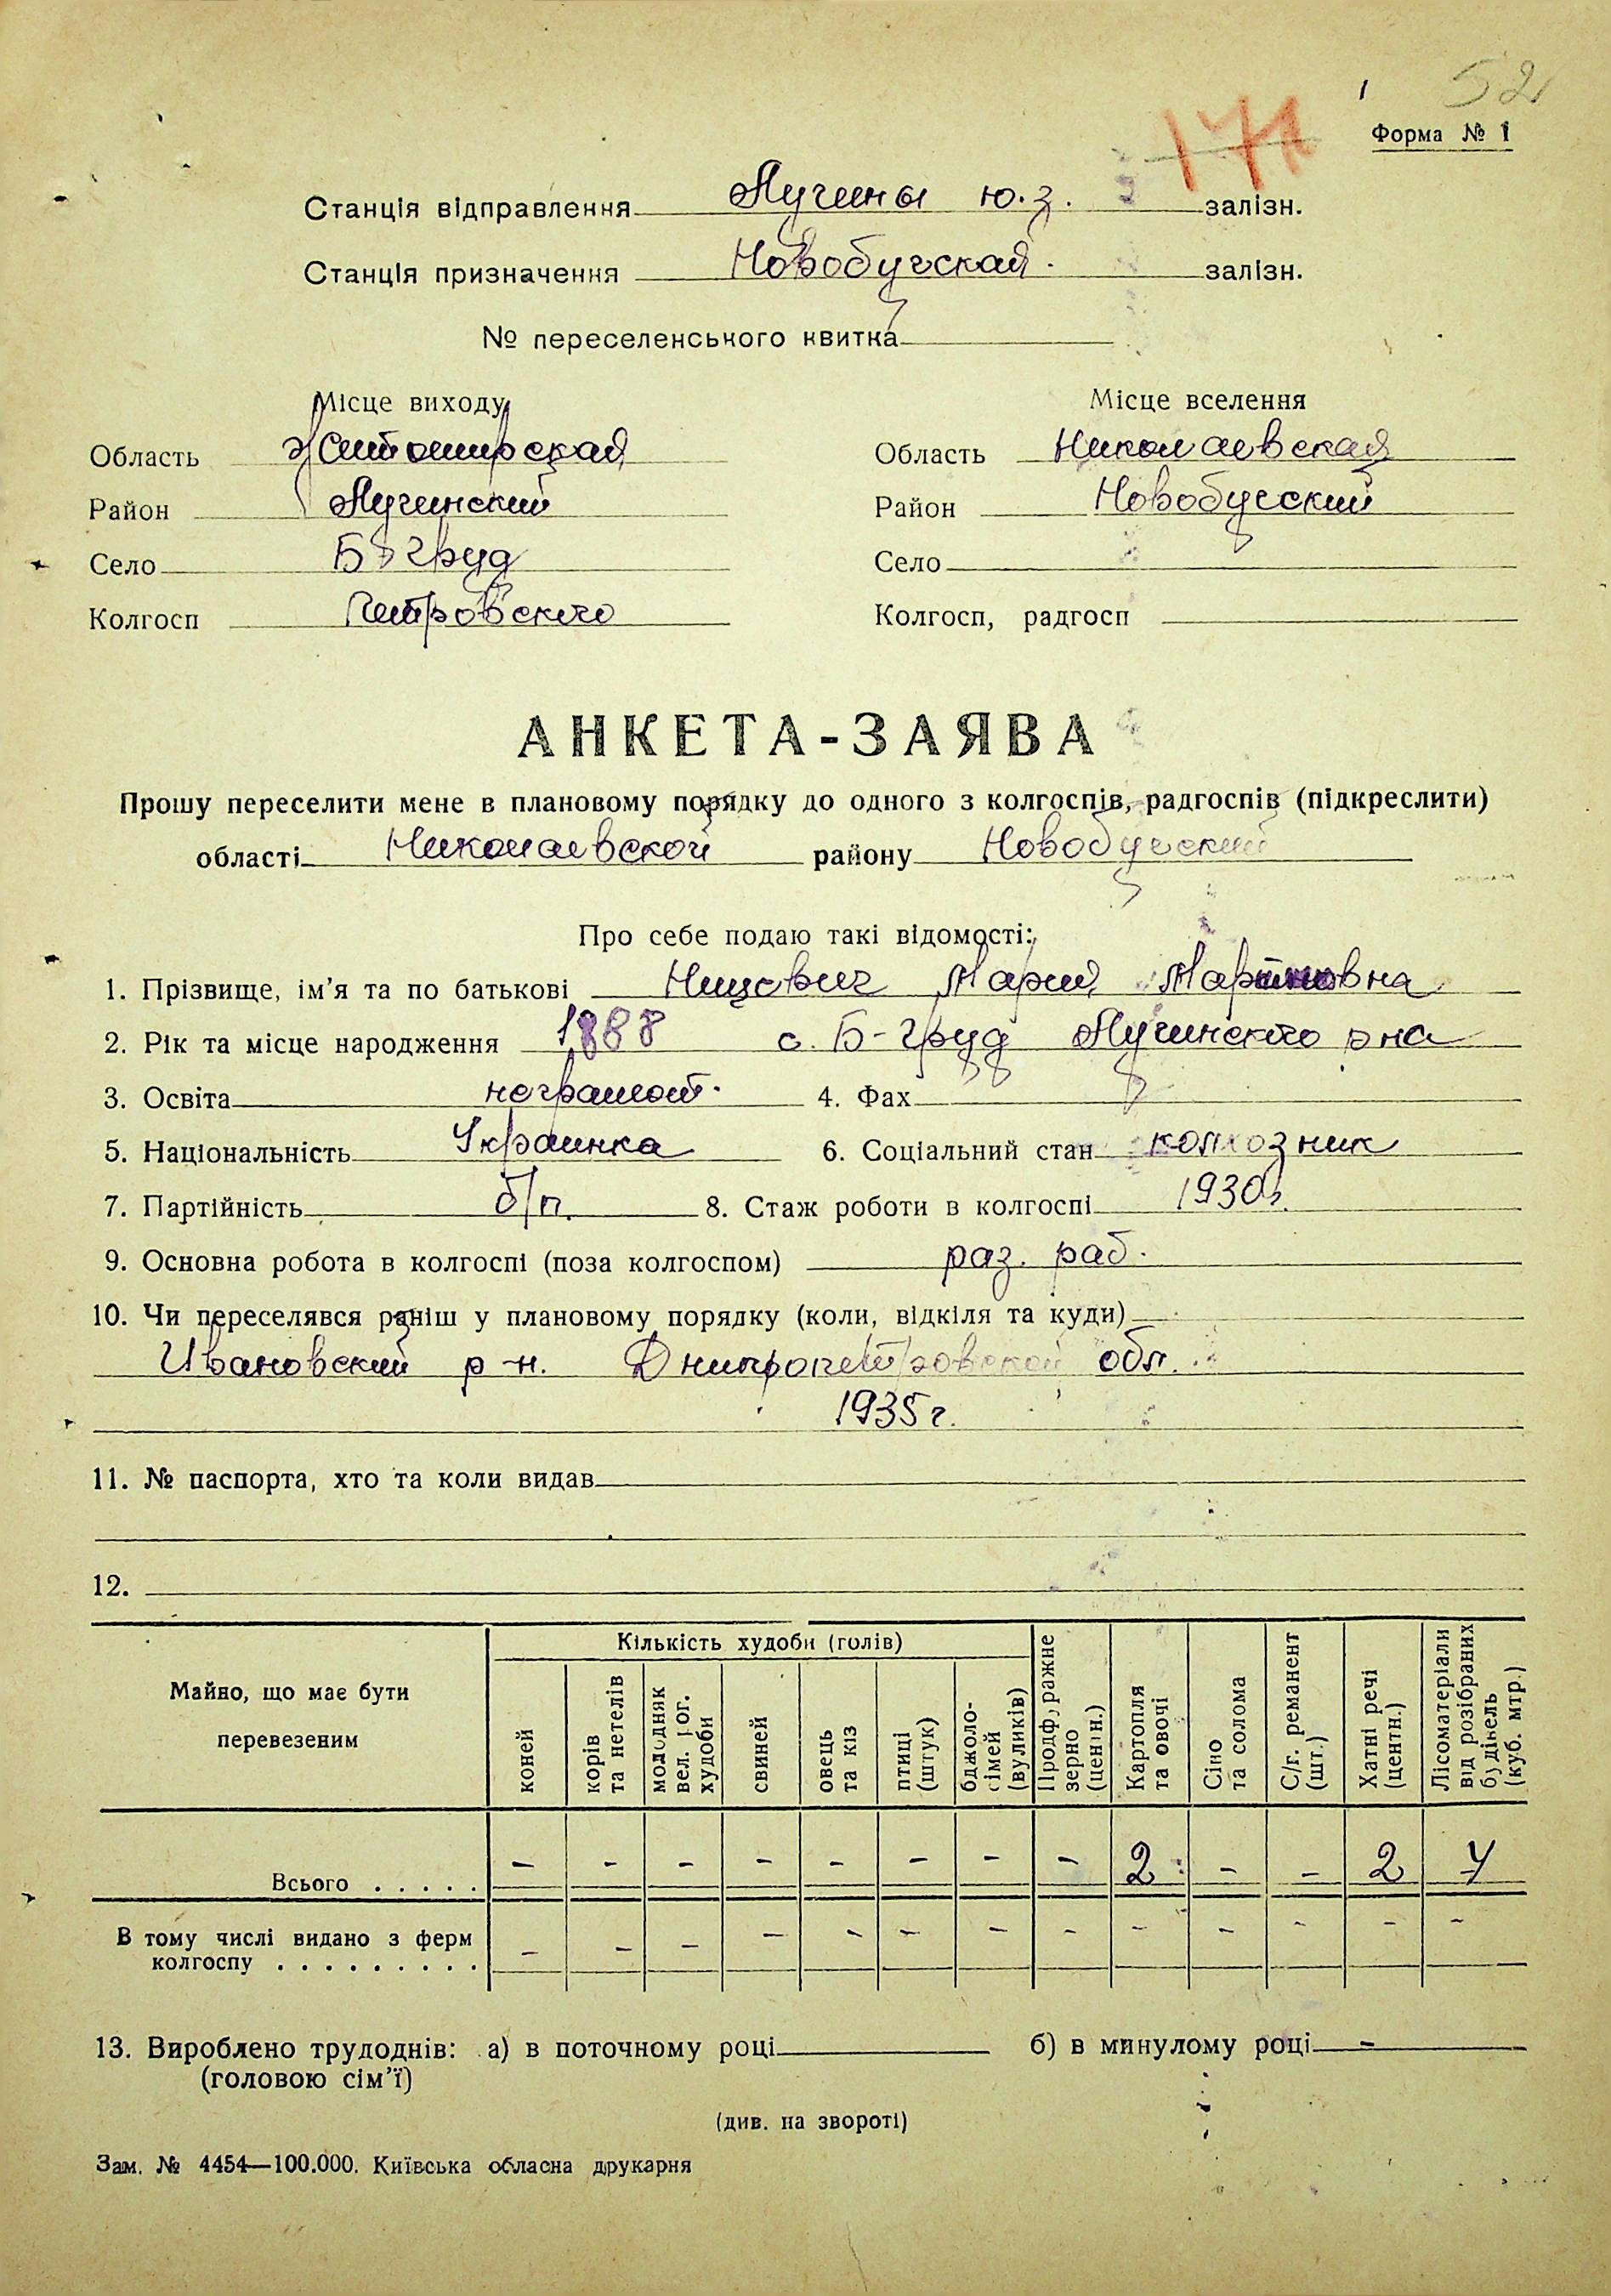 52
171
Форма № 1
Станція відправлення Лучины ю.з. залізн.
Станція призначення Новобугская залізн.
№ переселенського квитка
Місце виходу
Місце вселення
Область Житомирская
Область Николаевская
Район Лугинский
Район Новобугский
Село Б-Груд
Село
Колгосп Петровского
Колгосп, радгосп
АНКЕТА-ЗАЯВА
Прошу переселити мене в плановому порядку до одного з колгоспів, радгоспів (підкреслити)
області Николаевской району Новобугский
Про себе подаю такі відомості:
1. Прізвище, ім’я та по батькові Ницович Мария Мартиновна
2. Рік та місце народження 1888 с. Б-Груд Лугинского рна
3. Освіта неграмот. 4. Фах
5. Національність Украинка 6. Соціальний стан колхозник
7. Партійність б/п. 8. Стаж роботи в колгоспі 1930г.
9. Основна робота в колгоспі (поза колгоспом) раз. раб.
10. Чи переселявся раніш у плановому порядку (коли, відкіля та куди)
Ивановский р-н. Днипропетровской обл.
1935 г.
11. № паспорта, хто та коли видав
12.
Майно, що має бути перевезеним
Кількість худоби (голів)
коней
корів та нетелів
молодняк вел. рог. худоби
свиней
овець та кіз
птиці (штук)
бджоло-сімей (вуликів)
Продфуражне зерно (центн.)
Картопля та овочі
Сіно та солома
С/г. реманент (шт.)
Хатні речі (центн.)
Лісоматеріали від розібраних будівель (куб. мтр.)
Всього . . . . . – – – – – – – – 2 – – 2 4
В тому числі видано з ферм
колгоспу . . . . . . . . . – – – – – – – – – – – – –
13. Вироблено трудоднів: а) в поточному році б) в минулому році –
(головою сім’ї)
(див. на звороті)
Зам. № 4454—100.000. Київська обласна друкарня